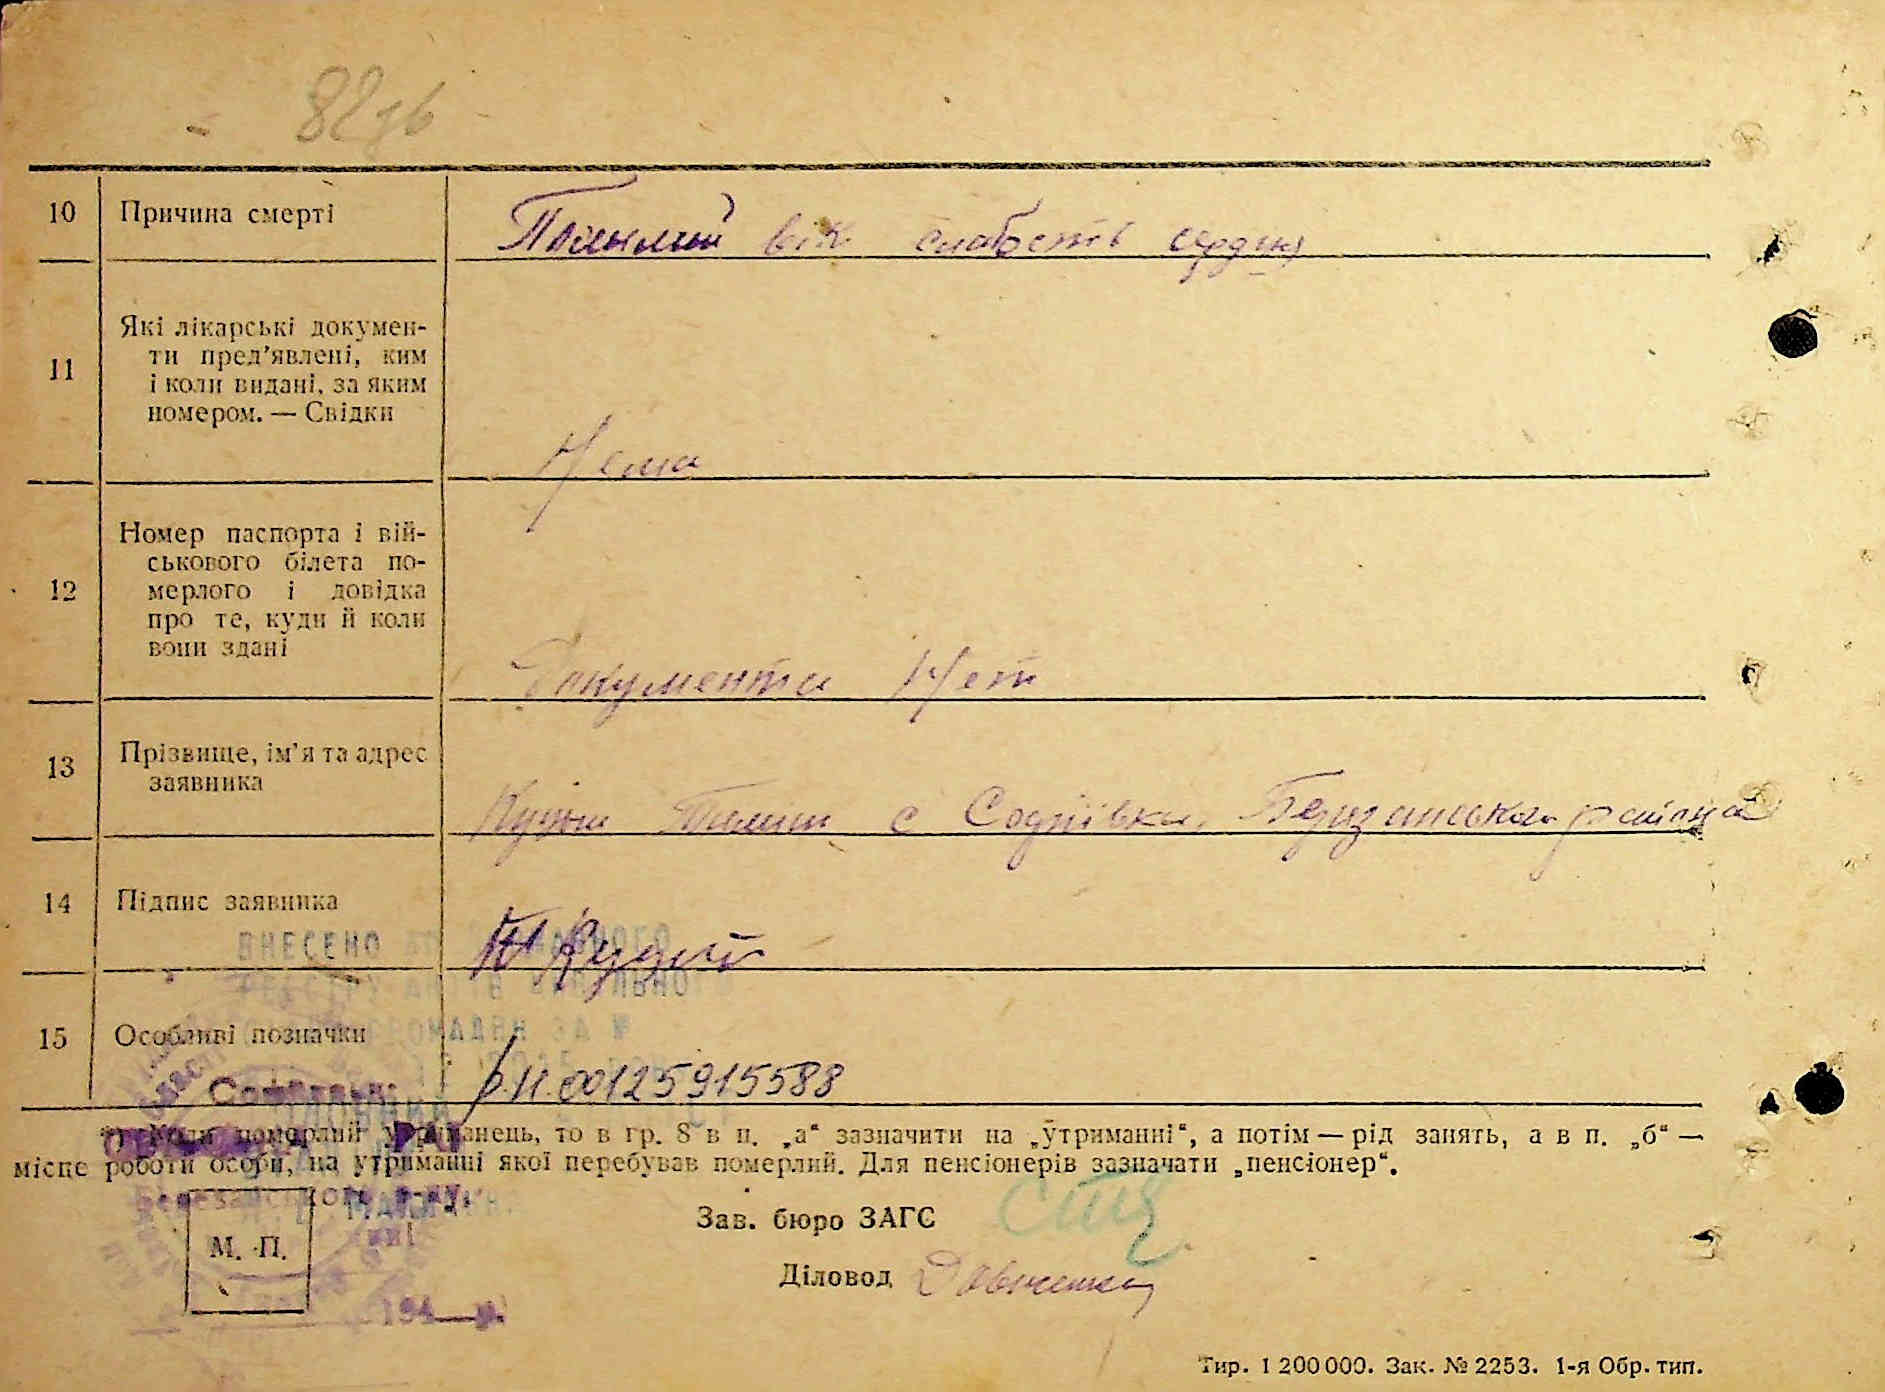 82зв
10 Причина смерті
Похилий вік слабость сердця
11 Які лікарські докумен-
ти пред’явлені, ким
і коли видані, за яким
номером. — Свідки
Нема
12 Номер паспорта і вій-
ськового білета по-
мерлого і довідка
про те, куди й коли
вони здані
Документи Нет
13 Прізвище, ім’я та адрес
заявника
с Софіївка, района
14 Підпис заявника
ВНЕСЕНО ДО
15 Особливі позначки
00125915588
*) Коли померлий утриманець, то в гр. 8 в п. „а“ зазначити на „утриманні“, а потім — рід занять, а в п. „б“ —
місце роботи особи, на утриманні якої перебував померлий. Для пенсіонерів зазначати „пенсіонер“.
Зав. бюро ЗАГС
М. П.
Діловод
194
Тир. 1 200 000. Зак. № 2253. 1-я Обр. тип.